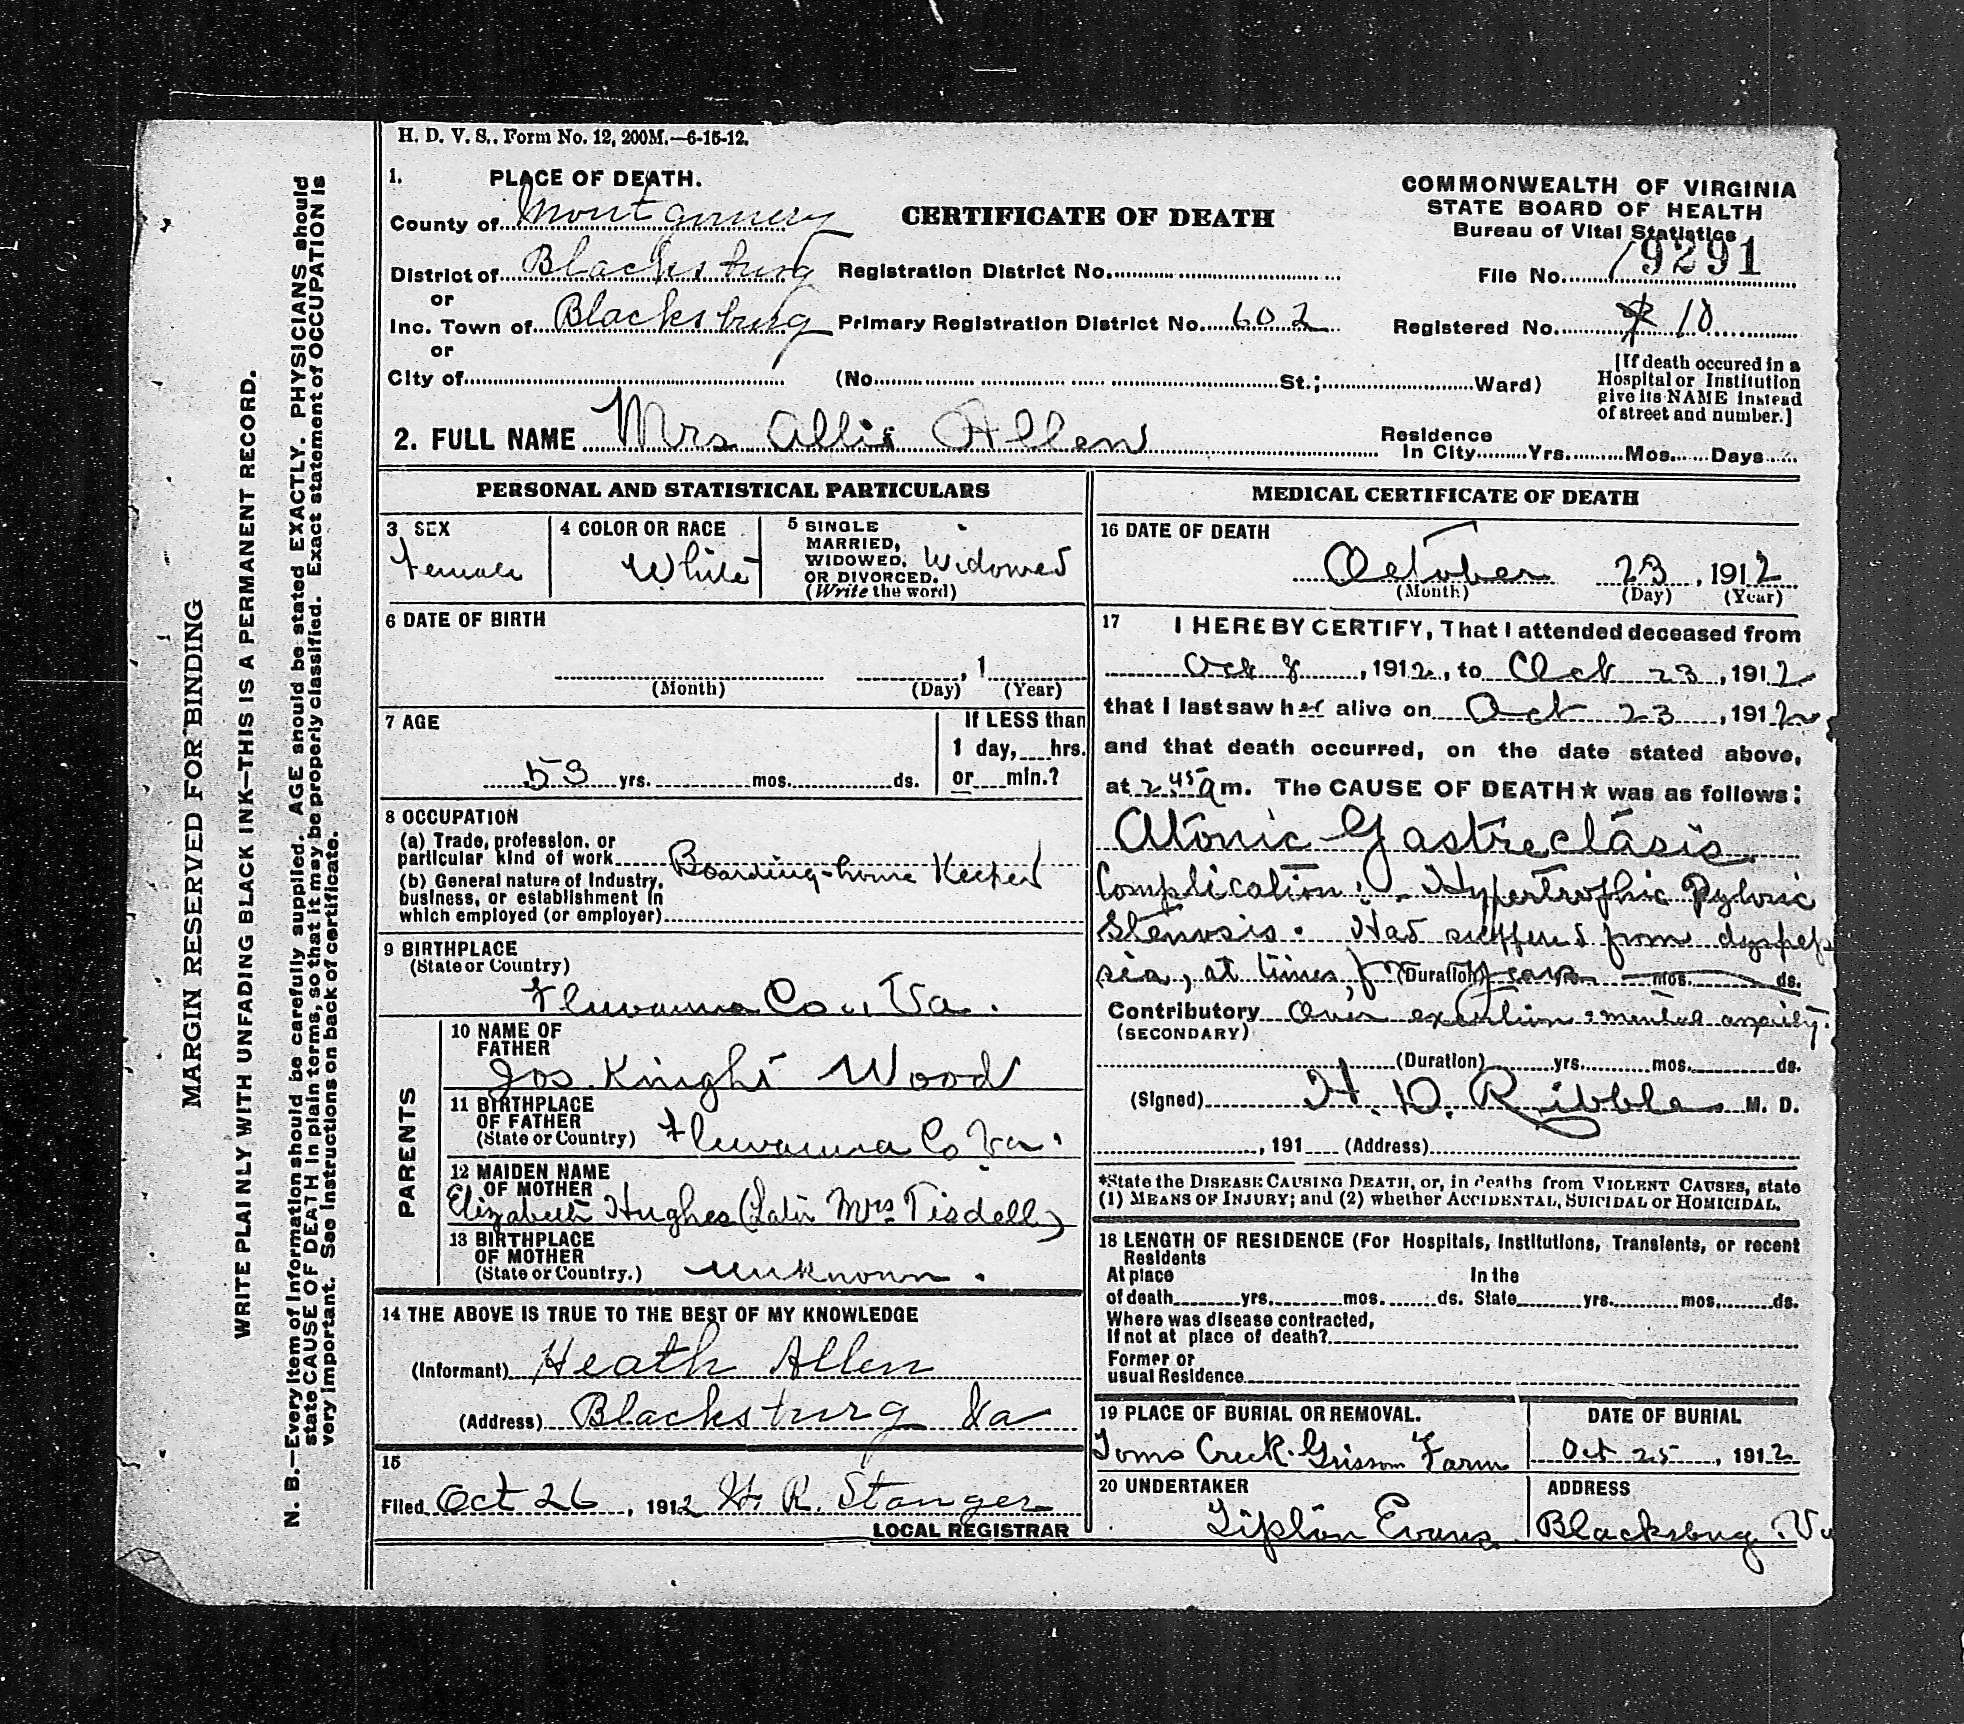 H. D. V. S., Form No. 12, 200M.—6-15-12.
1. PLACE OF DEATH.
County of Montgomery
District of Blacksburg
or
Inc. Town of Blacksburg
or
City of
CERTIFICATE OF DEATH
Registration District No.
Primary Registration District No. 602
(No. St.; Ward)
COMMONWEALTH OF VIRGINIA
STATE BOARD OF HEALTH
Bureau of Vital Statistics
File No. 19291
Registered No. 10
[If death occured in a
Hospital or Institution
give its NAME instead
of street and number.]
2. FULL NAME Mrs Allie Allen
Residence
In City Yrs. Mos. Days
PERSONAL AND STATISTICAL PARTICULARS
3 SEX
Female
4 COLOR OR RACE
White
5 SINGLE
MARRIED,
WIDOWED,
OR DIVORCED.
(Write the word)
Widowed
6 DATE OF BIRTH
, 1
(Month) (Day) (Year)
7 AGE
53 yrs. mos. ds.
If LESS than
1 day, hrs.
or min.?
8 OCCUPATION
(a) Trade, profession, or
particular kind of work Boarding-house Keeper
(b) General nature of Industry,
business, or establishment in
which employed (or employer)
9 BIRTHPLACE
(State or Country)
Fluvanna Co., Va.
PARENTS
10 NAME OF
FATHER
Jos. Knight Wood
11 BIRTHPLACE
OF FATHER
(State or Country) Fluvanna Co Va.
12 MAIDEN NAME
OF MOTHER
Elizabeth Hughes (Later Mrs. Tisdell)
13 BIRTHPLACE
OF MOTHER
(State or Country.) unknown.
14 THE ABOVE IS TRUE TO THE BEST OF MY KNOWLEDGE
(Informant) Heath Allen
(Address) Blacksburg Va
15
Filed Oct 26, 1912 H. R. Stanger
LOCAL REGISTRAR
MEDICAL CERTIFICATE OF DEATH
16 DATE OF DEATH
October 23, 1912
(Month) (Day) (Year)
17 I HEREBY CERTIFY, That I attended deceased from
Oct 8, 1912, to Oct 23, 1912
that I last saw her alive on Oct 23, 1912
and that death occurred, on the date stated above,
at 2 45 a m. The CAUSE OF DEATH★ was as follows:
Atonic Gastreclasis
Complication:- Hypertrophic Pyloric
Stenosis. Had suffered from dyspep
sia, at times, for years (Duration) mos. ds.
Contributory Over exertion & mental anxiety.
(SECONDARY)
(Duration) yrs. mos. ds.
(Signed) H. D. Ribble M. D.
, 191 (Address)
*State the DISEASE CAUSING DEATH, or, in deaths from VIOLENT CAUSES, state
(1) MEANS OF INJURY; and (2) whether ACCIDENTAL, SUICIDAL or HOMICIDAL.
18 LENGTH OF RESIDENCE (For Hospitals, Institutions, Transients, or recent
Residents
At place In the
of death yrs. mos. ds. State yrs. mos. ds.
Where was disease contracted,
If not at place of death?
Former or
usual Residence
19 PLACE OF BURIAL OR REMOVAL.
Toms Creek-Grissom Farm
DATE OF BURIAL
Oct 25, 1912
20 UNDERTAKER
Tipton Evans
ADDRESS
Blacksburg Va
MARGIN RESERVED FOR BINDING
WRITE PLAINLY WITH UNFADING BLACK INK—THIS IS A PERMANENT RECORD.
N. B.—Every item of information should be carefully supplied. AGE should be stated EXACTLY. PHYSICIANS should
state CAUSE OF DEATH in plain terms, so that it may be properly classified. Exact statement of OCCUPATION is
very important. See instructions on back of certificate.